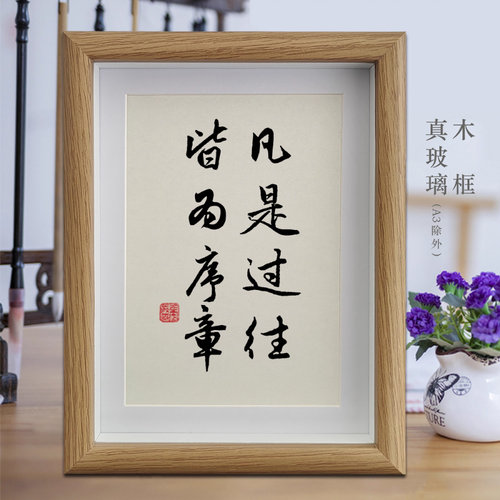 凡是过往
皆为序章
木框
真玻璃
(A3除外)